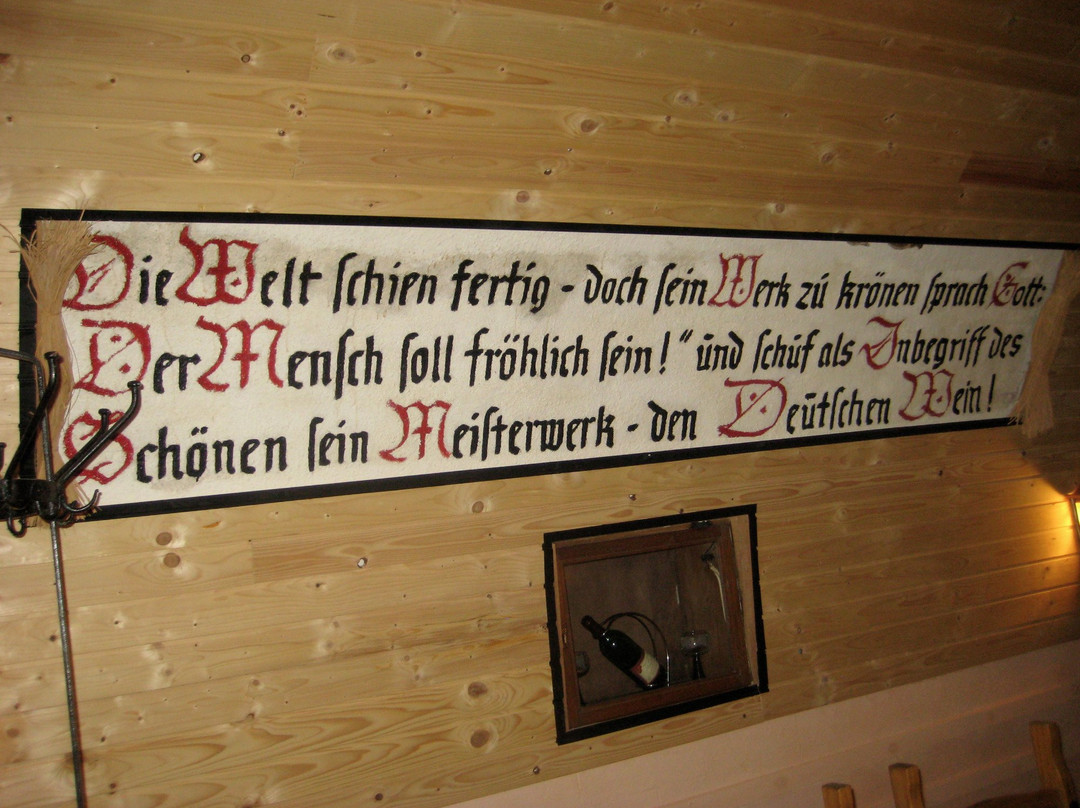 Die Welt schien fertig - doch sein Werk zu krönen sprach Gott:
Der Mensch soll fröhlich sein!" und schuf als Inbegriff des
Schönen sein Meisterwerk - den Deutschen Wein!